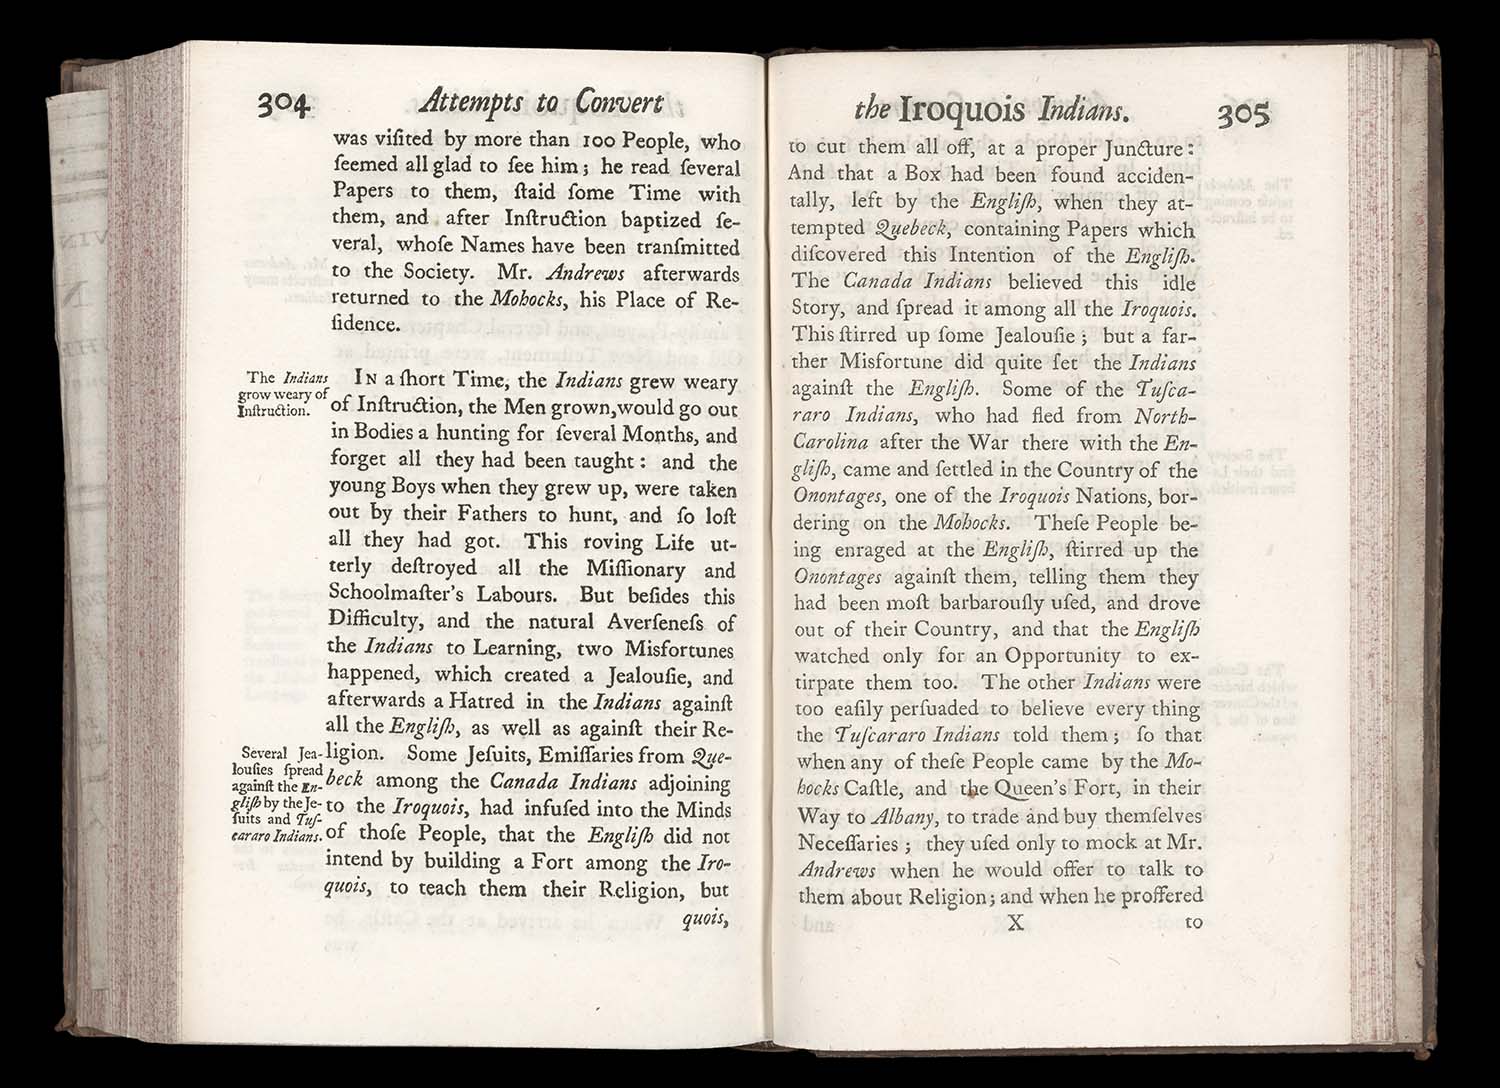 304 Attempts to Convert
was viſited by more than 100 People, who
ſeemed all glad to ſee him; he read ſeveral
Papers to them, ſtaid ſome Time with
them, and after Inſtruction baptized ſe-
veral, whoſe Names have been tranſmitted
to the Society. Mr. Andrews afterwards
returned to the Mohocks, his Place of Re-
ſidence.
The Indians
grow weary of
Inſtruction.
IN a ſhort Time, the Indians grew weary
of Inſtruction, the Men grown,would go out
in Bodies a hunting for ſeveral Months, and
forget all they had been taught: and the
young Boys when they grew up, were taken
out by their Fathers to hunt, and ſo loſt
all they had got. This roving Life ut-
terly deſtroyed all the Miſſionary and
Schoolmaſter's Labours. But beſides this
Difficulty, and the natural Averſeneſs of
the Indians to Learning, two Misfortunes
happened, which created a Jealouſie, and
afterwards a Hatred in the Indians againſt
all the Engliſh, as well as againſt their Re-
ligion. Some Jeſuits, Emiſſaries from Que-
beck among the Canada Indians adjoining
to the Iroquois, had infuſed into the Minds
of thoſe People, that the Engliſh did not
intend by building a Fort among the Iro-
quois, to teach them their Religion, but
quois,
Several Jea-
louſies ſpread
againſt the En-
gliſh by the Je-
ſuits and Tuſ-
cararo Indians.
the Iroquois Indians. 305
to cut them all off, at a proper Juncture:
And that a Box had been found acciden-
tally, left by the Engliſh, when they at-
tempted Quebeck, containing Papers which
diſcovered this Intention of the Engliſh.
The Canada Indians believed this idle
Story, and ſpread it among all the Iroquois.
This ſtirred up ſome Jealouſie; but a far-
ther Misfortune did quite ſet the Indians
againſt the Engliſh. Some of the Tuſca-
raro Indians, who had fled from North-
Carolina after the War there with the En-
gliſh, came and ſettled in the Country of the
Onontages, one of the Iroquois Nations, bor-
dering on the Mohocks. Theſe People be-
ing enraged at the Engliſh, ſtirred up the
Onontages againſt them, telling them they
had been moſt barbarouſly uſed, and drove
out of their Country, and that the Engliſh
watched only for an Opportunity to ex-
tirpate them too. The other Indians were
too eaſily perſuaded to believe every thing
the Tuſcararo Indians told them; ſo that
when any of theſe People came by the Mo-
hocks Caſtle, and the Queen's Fort, in their
Way to Albany, to trade and buy themſelves
Neceſſaries; they uſed only to mock at Mr.
Andrews when he would offer to talk to
them about Religion; and when he proffered
X to